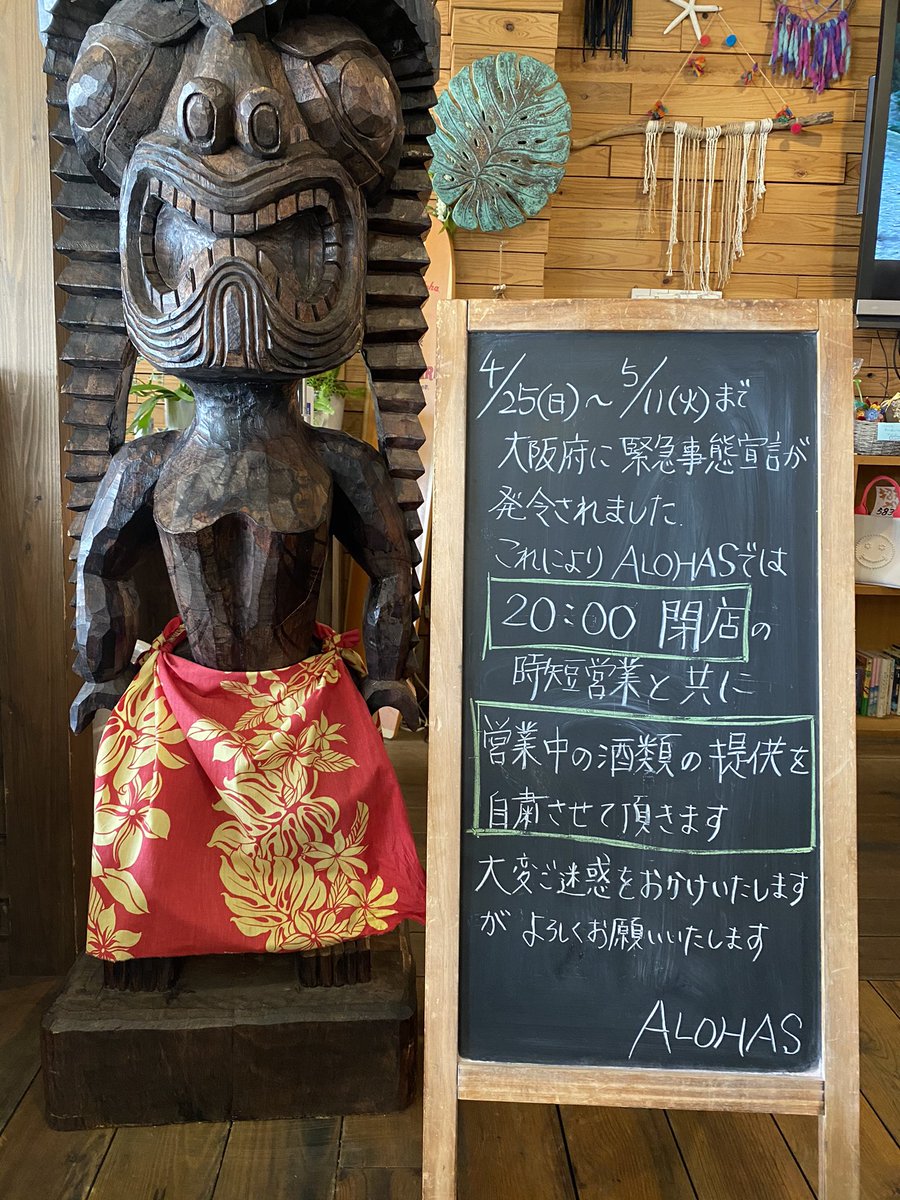 4/25(日)～5/11(火)まで
大阪府に緊急事態宣言が
発令されました.
これにより ALOHASでは
20:00 閉店の
時短営業と共に
営業中の酒類の提供を
自粛させて頂きます
大変ご迷惑をおかけいたします
が よろしくお願いいたします
ALOHAS
583